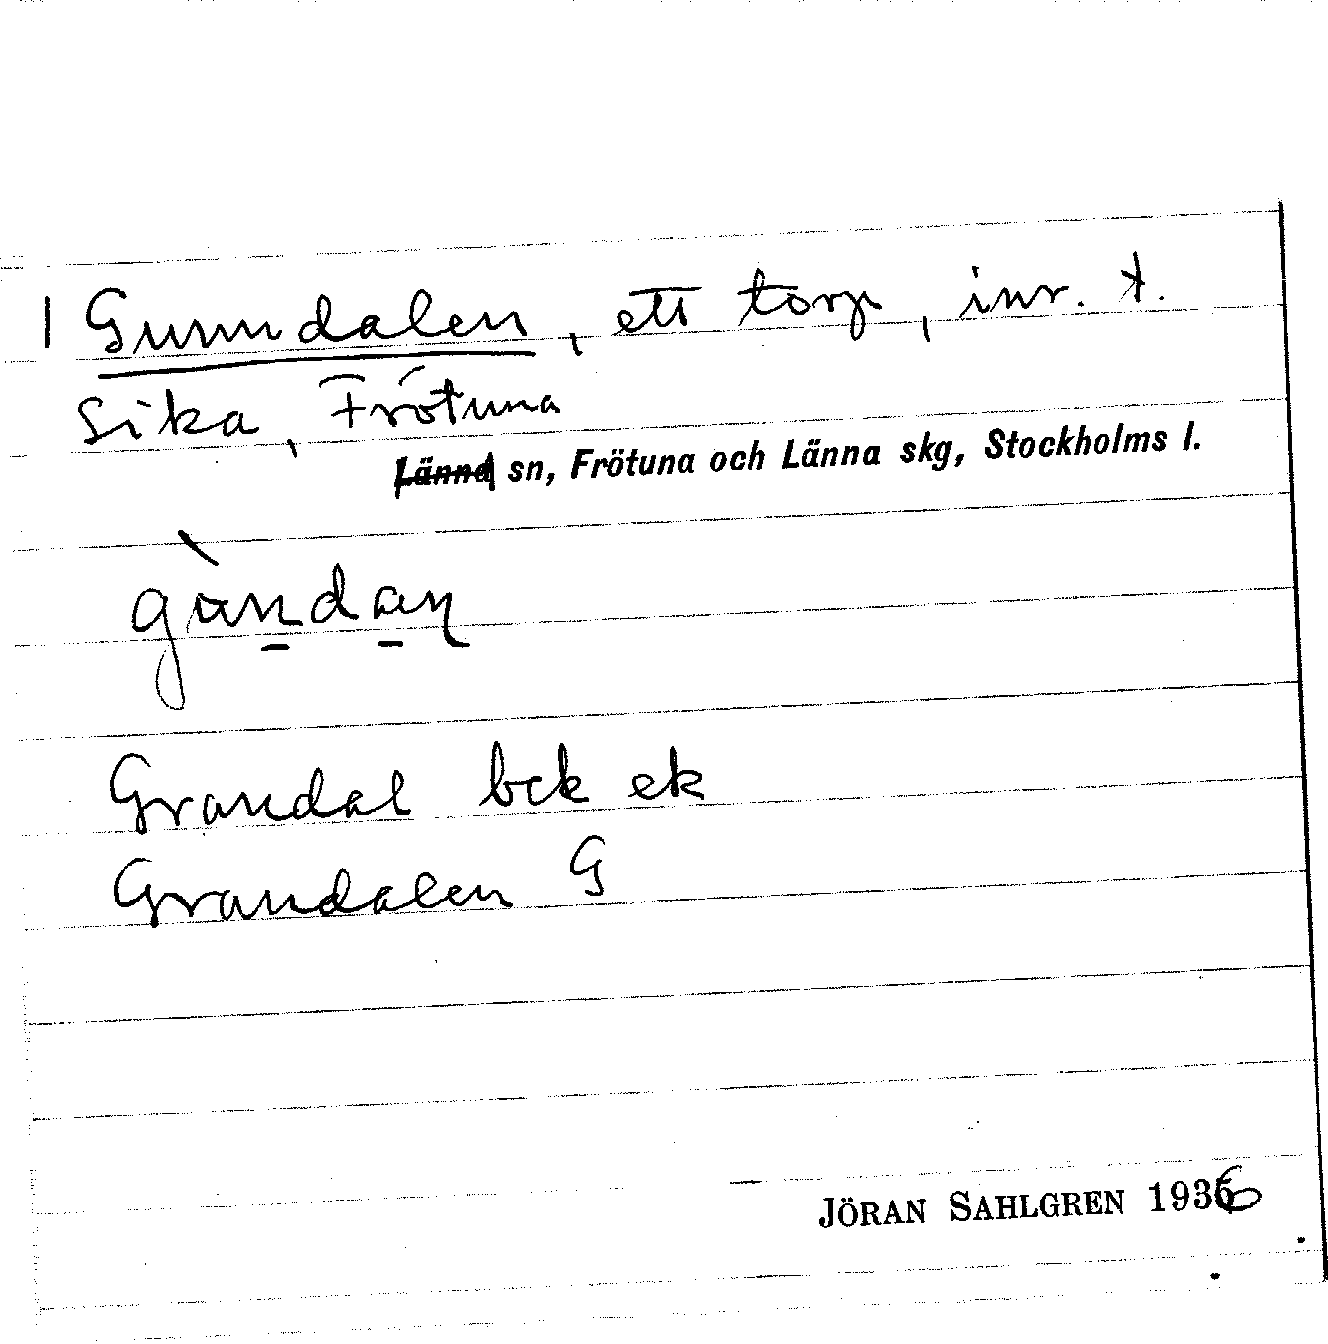 1 Gunndalen, ett torp, inr. t.
Sika, Frötuna
Länna sn, Frötuna och Länna skg, Stockholms l.
gùndaṉ
Grandal bck ek
Grandalen G
JÖRAN SAHLGREN 1936